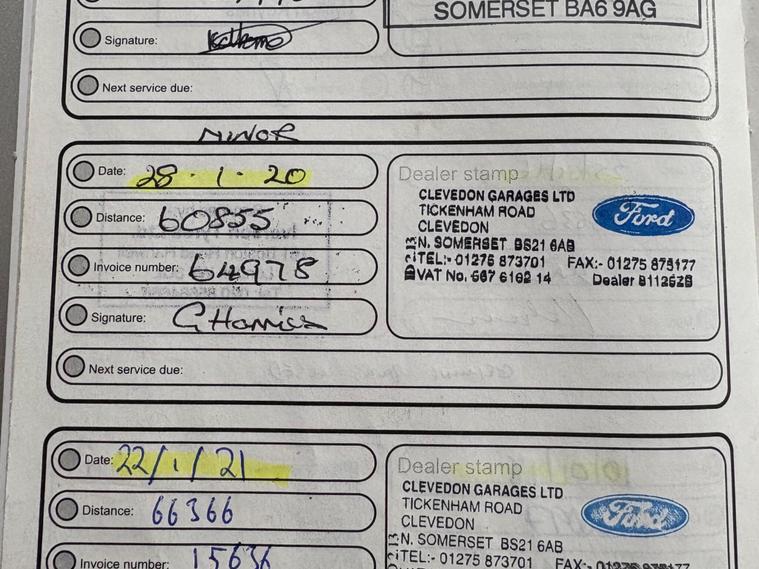 SOMERSET BA6 9AG
Signature:
Next service due:
MINOR
Date: 28.1.20
Distance: 60855
Invoice number: 64978
Signature: G Harris
Next service due:
Dealer stamp
CLEVEDON GARAGES LTD
TICKENHAM ROAD
CLEVEDON
N. SOMERSET BS21 6AB
TEL:- 01275 873701 FAX:- 01275 875177
VAT No. 667 6162 14 Dealer
Ford
Date: 22/1/21
Distance: 66366
Invoice number: 15636
Dealer stamp
CLEVEDON GARAGES LTD
TICKENHAM ROAD
CLEVEDON
N. SOMERSET BS21 6AB
TEL:- 01275 873701 FAX:-
Ford